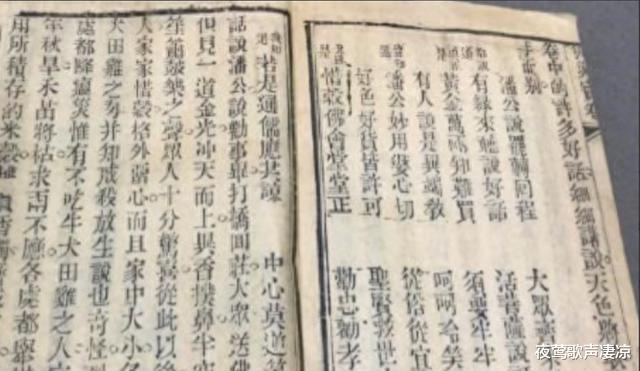 卷中的許多好話細細講說天色
手而別
潘公說罷轉回程 大眾
有緣來聽說好話 活菩薩說
黃金萬兩知難買 須要牢牢
有人說是異端教 呵呵冷笑
潘公妙用婆心切 從俗從宜
好色好貨皆許可 聖賢救世
惜穀佛會堂堂正 勸忠勸孝
若是通儒應共諒 中心莫道
話說潘公說勸事畢打橋回莊大眾送佛
但見一道金光冲天而上異香撲鼻半空
笙簫鼓樂之聲眾人十分驚喜從此以
人家家惜穀格外留心而且家中大小
犬田雞之多并知戒殺放生說也奇怪
處都降瘟災惟有不吃牛犬田雞之人
年秋旱禾苗將枯求雨不應各處都
用所積存的米穀
夜莺歌声凄凉